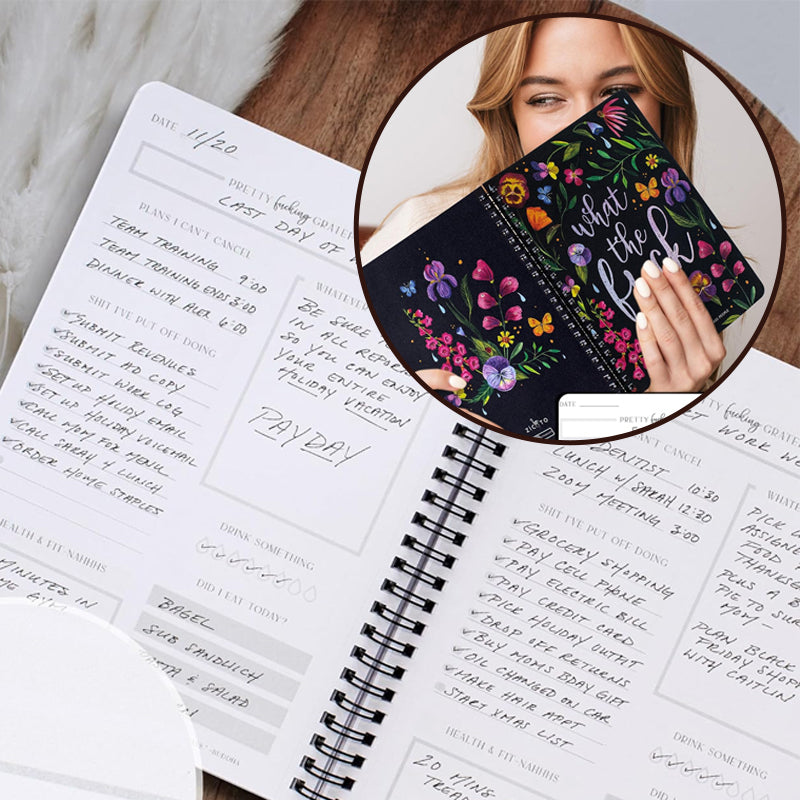 DATE 11/20
PRETTY fucking GRATEF
LAST DAY OF
PLANS I CAN'T CANCEL
TEAM TRAINING 9:00
TEAM TRAINING ENDS 3:00
DINNER WITH ALEX 6:00
SHIT I'VE PUT OFF DOING
SUBMIT REVENUES
SUBMIT MO COPY
SUBMIT WORK LOG
SET UP HOLIDY EMAIL
SET UP HOLIDAY VOICEMAIL
CALL MOM FOR MENU
CALL SARAH 4 LUNCH
ORDER HOME STAPLES
WHATEVE
BE SURE T
IN ALL REPOR
SO YOU CAN ENJOY
YOUR ENTIRE
HOLIDAY VACATION
PAYDAY
HEALTH & FIT-NAHHHS
MINUTES IN
DRINK SOMETHING
DID I EAT TODAY?
BAGEL
SUB SANDWICH
PASTA & SALAD
-BUDDHA
what
the
fuck
ZICOTO
DATE
PRETTY fucking
PRETTY fucking GRATEF
WORK WE
CAN'T CANCEL
DENTIST 10:30
LUNCH W/ SARAH 12:30
ZOOM MEETING 3:00
SHIT I'VE PUT OFF DOING
GROCERY SHOPPING
PAY CELL PHONE
PAY ELECTRIC BILL
PAY CREDIT CARD
PICK HOLIDAY OUTFIT
DROP OFF RETURNS
BUY MOMS BDAY GIFT
OIL CHANGED ON CAR
MAKE HAIR APPT
START XMAS LIST
WHATE
PICK U
ASSIGNE
FOOD
THANKSG
PLUS A B
PIE TO SUR
MOM -
PLAN BLACK
FRIDAY SHOPP
WITH CAITLIN
HEALTH & FIT-NAHHHS
20 MINS
TREA
DRINK SOMETHING